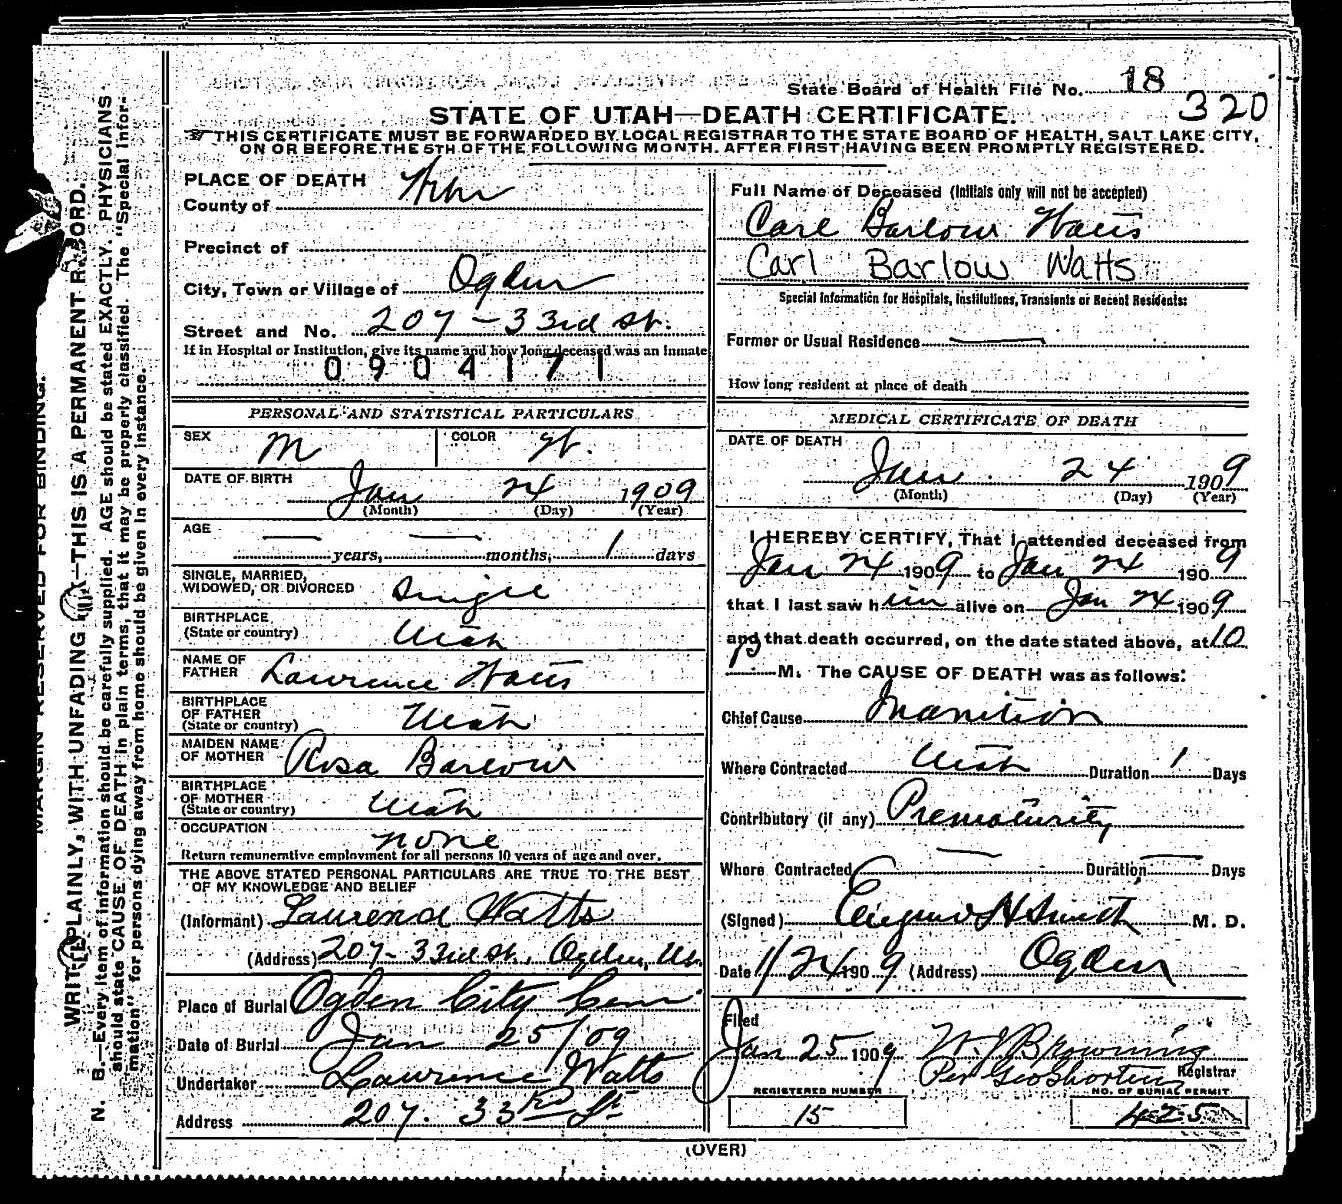 State Board of Health File No. 18
320
STATE OF UTAH—DEATH CERTIFICATE.
THIS CERTIFICATE MUST BE FORWARDED BY LOCAL REGISTRAR TO THE STATE BOARD OF HEALTH, SALT LAKE CITY,
ON OR BEFORE THE 5TH OF THE FOLLOWING MONTH. AFTER FIRST HAVING BEEN PROMPTLY REGISTERED.
MARGIN RESERVED FOR BINDING.
WRITE PLAINLY, WITH UNFADING INK—THIS IS A PERMANENT RECORD.
N. B.—Every item of information should be carefully supplied. AGE should be stated EXACTLY. PHYSICIANS
should state CAUSE OF DEATH in plain terms, that it may be properly classified. The "Special Infor-
mation" for persons dying away from home should be given in every instance.
PLACE OF DEATH
County of
Precinct of
City, Town or Village of Ogden
Street and No. 207 - 33rd St.
If in Hospital or Institution, give its name and how long deceased was an inmate
0904171
PERSONAL AND STATISTICAL PARTICULARS
SEX M COLOR W.
DATE OF BIRTH Jan 24 1909
(Month) (Day) (Year)
AGE — years, — months, 1 days
SINGLE, MARRIED,
WIDOWED, OR DIVORCED Single
BIRTHPLACE
(State or country) Utah
NAME OF
FATHER Lawrence Watts
BIRTHPLACE
OF FATHER
(State or country) Utah
MAIDEN NAME
OF MOTHER Rosa Barlow
BIRTHPLACE
OF MOTHER
(State or country) Utah
OCCUPATION none
Return remunerative employment for all persons 10 years of age and over.
THE ABOVE STATED PERSONAL PARTICULARS ARE TRUE TO THE BEST
OF MY KNOWLEDGE AND BELIEF
(Informant) Laurence Watts
(Address) 207- 33rd St., Ogden, Ut.
Place of Burial Ogden City Cem.
Date of Burial Jan 25/09
Undertaker Lawrence Watts
Address 207. 33rd St
Full Name of Deceased (Initials only will not be accepted)
Carl Barlow Watts
Carl Barlow Watts
Special Information for Hospitals, Institutions, Transients or Recent Residents:
Former or Usual Residence —
How long resident at place of death
MEDICAL CERTIFICATE OF DEATH
DATE OF DEATH
Jan 24 1909
(Month) (Day) (Year)
I HEREBY CERTIFY, That I attended deceased from
Jan 24 1909 to Jan 24 1909
that I last saw him alive on Jan 24 1909
and that death occurred, on the date stated above, at 10
P M. The CAUSE OF DEATH was as follows:
Chief Cause Inanition
Where Contracted Utah Duration 1 Days
Contributory (if any) Prematurity
Where Contracted — Duration — Days
(Signed) H Smith M. D.
Date 1/24 1909 (Address) Ogden
Filed
Jan 25 1909 W. J Browning
Registrar
Per Geo Shorten
REGISTERED NUMBER
15
NO. OF BURIAL PERMIT
425
(OVER)